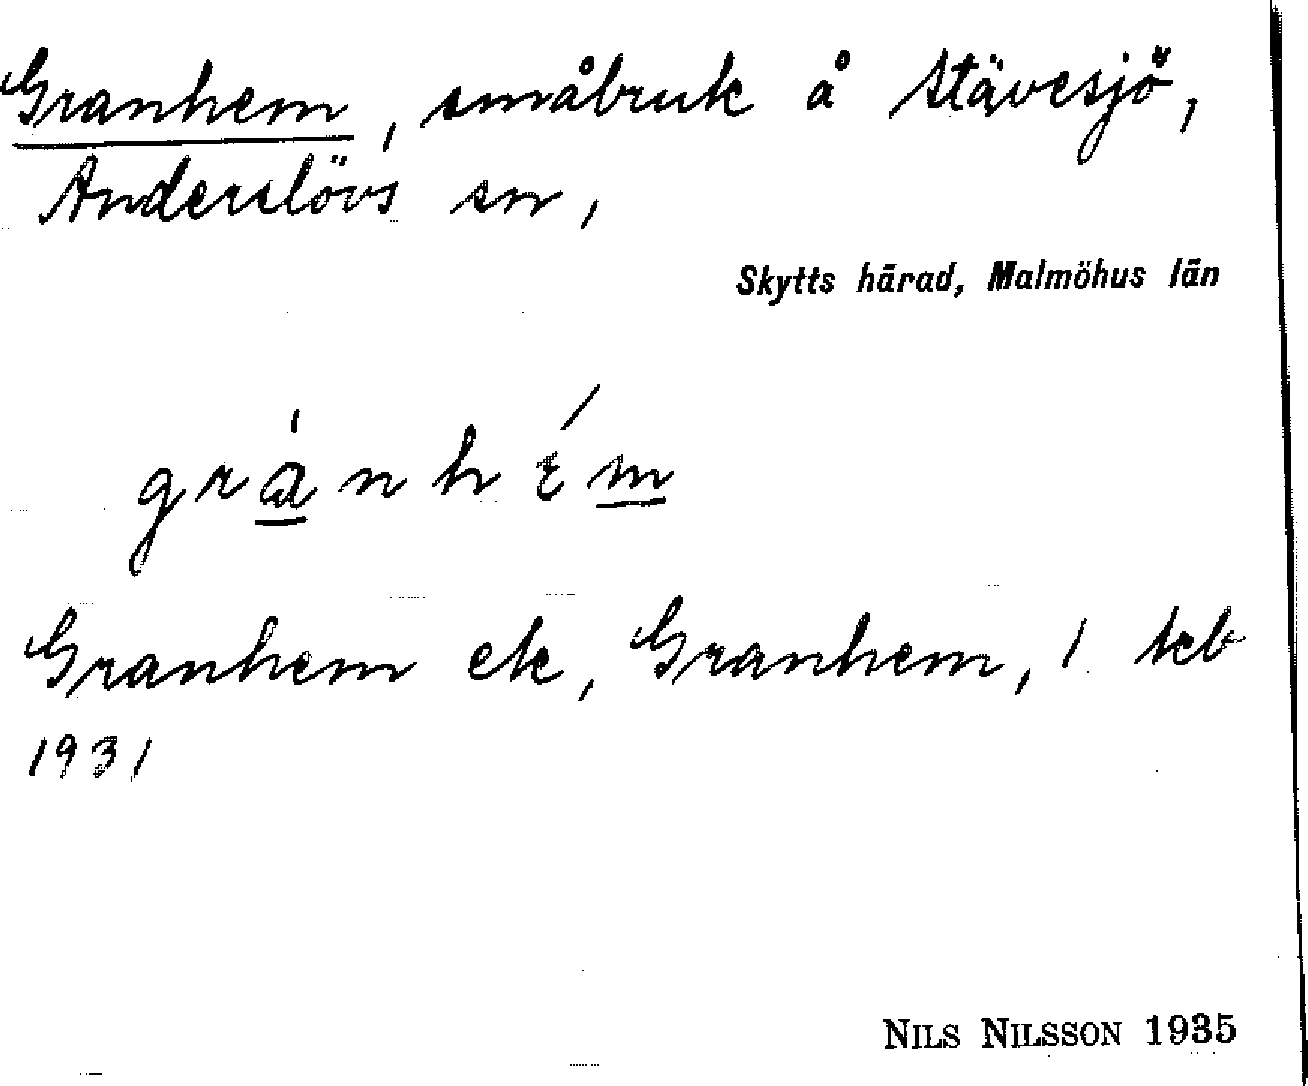 Granhem, småbruk å Stävesjö,
Anderslövs sn,
Skytts härad, Malmöhus län
grànhém
Granhem ek, Granhem, 1 kb
1931
NILS NILSSON 1935